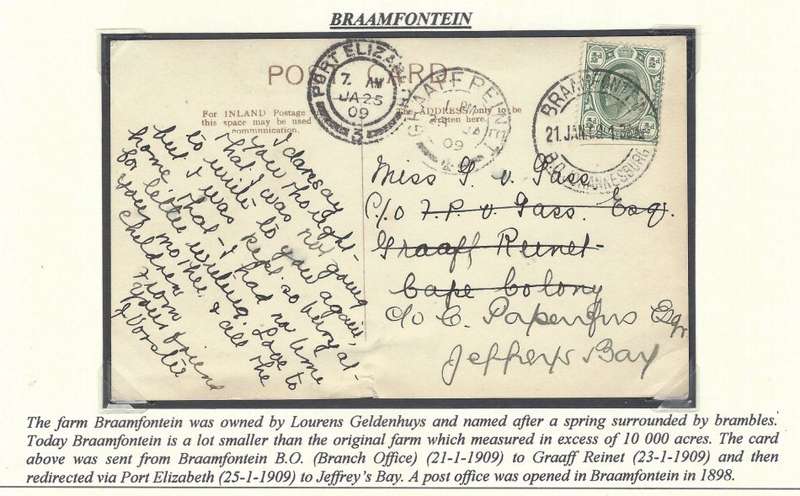 BRAAMFONTEIN
POST CARD
For INLAND Postage
this space may be used
communication.
The ADDRESS only to be
written here.
PORT ELIZABETH
7. AM
JA 25
09
3
GRAAFF REINET
PM
JA
09
BRAAMFONTEIN
21 JAN 09
B.O. JOHANNESBURG
I daresay
you thought
that I was not going
to write to you again,
but I was kept so busy at
home that I had no time
for letter writing. Love to
your mother & all the
children
From
your friend
Miss S. v. Gass
C/o F. P. v. Gass. Esq.
Graaff Reinet
Cape Colony
c/o C. Papenfus Esqr
Jeffreys Bay
The farm Braamfontein was owned by Lourens Geldenhuys and named after a spring surrounded by brambles.
Today Braamfontein is a lot smaller than the original farm which measured in excess of 10 000 acres. The card
above was sent from Braamfontein B.O. (Branch Office) (21-1-1909) to Graaff Reinet (23-1-1909) and then
redirected via Port Elizabeth (25-1-1909) to Jeffrey's Bay. A post office was opened in Braamfontein in 1898.